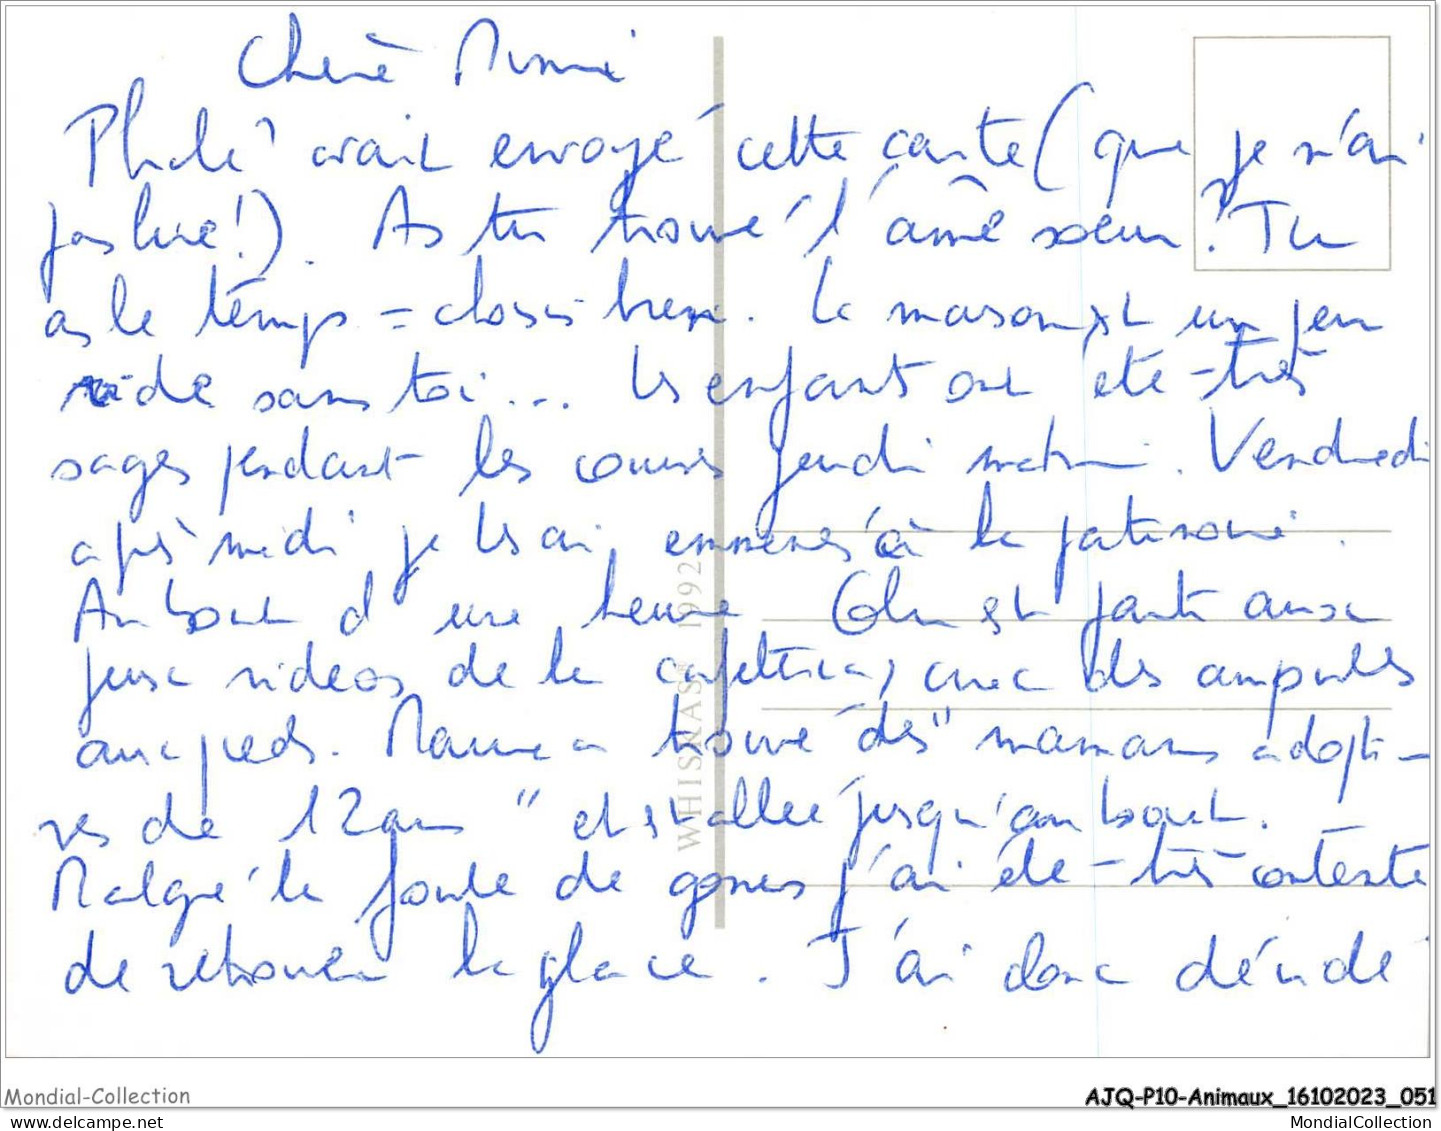 Chère Mimie
avait envoyé cette carte (que je n'ai
pas lue!). As tu trouvé l'âme soeur? Tu
as le temps = choisis bien. La maison est un peu
vide sans toi... Les enfants ont été très
sages pendant les courses jeudi matin. Vendredi
après midi je les ai emmenés à la patinoire.
Au bout d'une heure Colin est parti aux
jeux vidéos de la cafétéria, avec des ampoules
aux pieds. a trouvé des "mamans adopti-
ves de 12 ans" et est allée jusqu'au bout.
Malgré la foule de gones j'ai été très contente
de retrouver la glace. J'ai donc décidé
WHISKAS® 1992
Mondial-Collection
AJQ-P10-Animaux_16102023_051
https://www.delcampe.net
MondialCollection